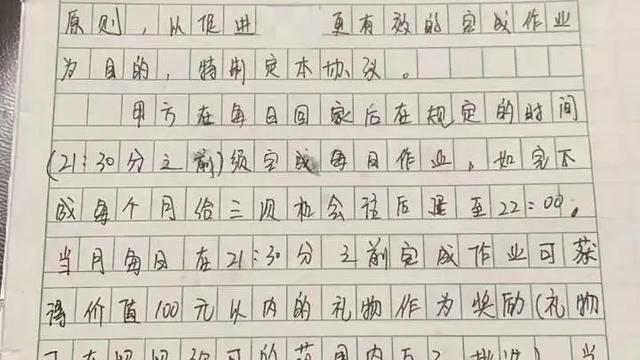 原则，以促进 更有效的完成作业
为目的，特制定本协议。
甲方在每日回家后在规定的时间
(21:30分之前)须完成每日作业，如完不
成每个月给三次机会往后退至22:00。
当月每日在21:30分之前完成作业可获
得价值100元以内的礼物作为奖励(礼物